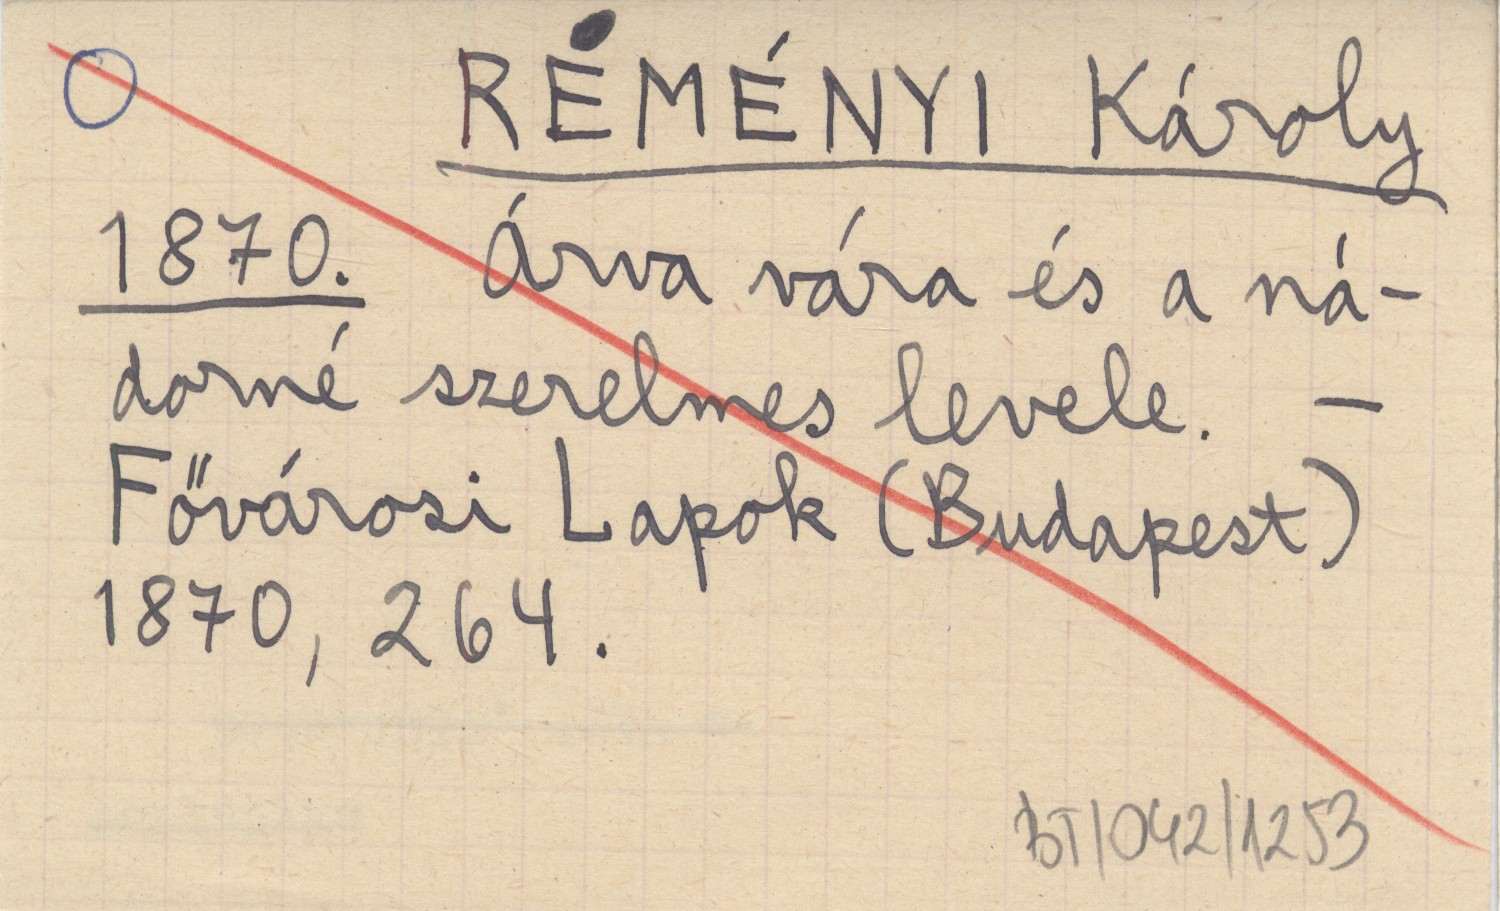 RÉMÉNYI Károly
1870. Árva vára és a ná-
dorné szerelmes levele. —
Fővárosi Lapok (Budapest)
1870, 264.
BT/042/1253